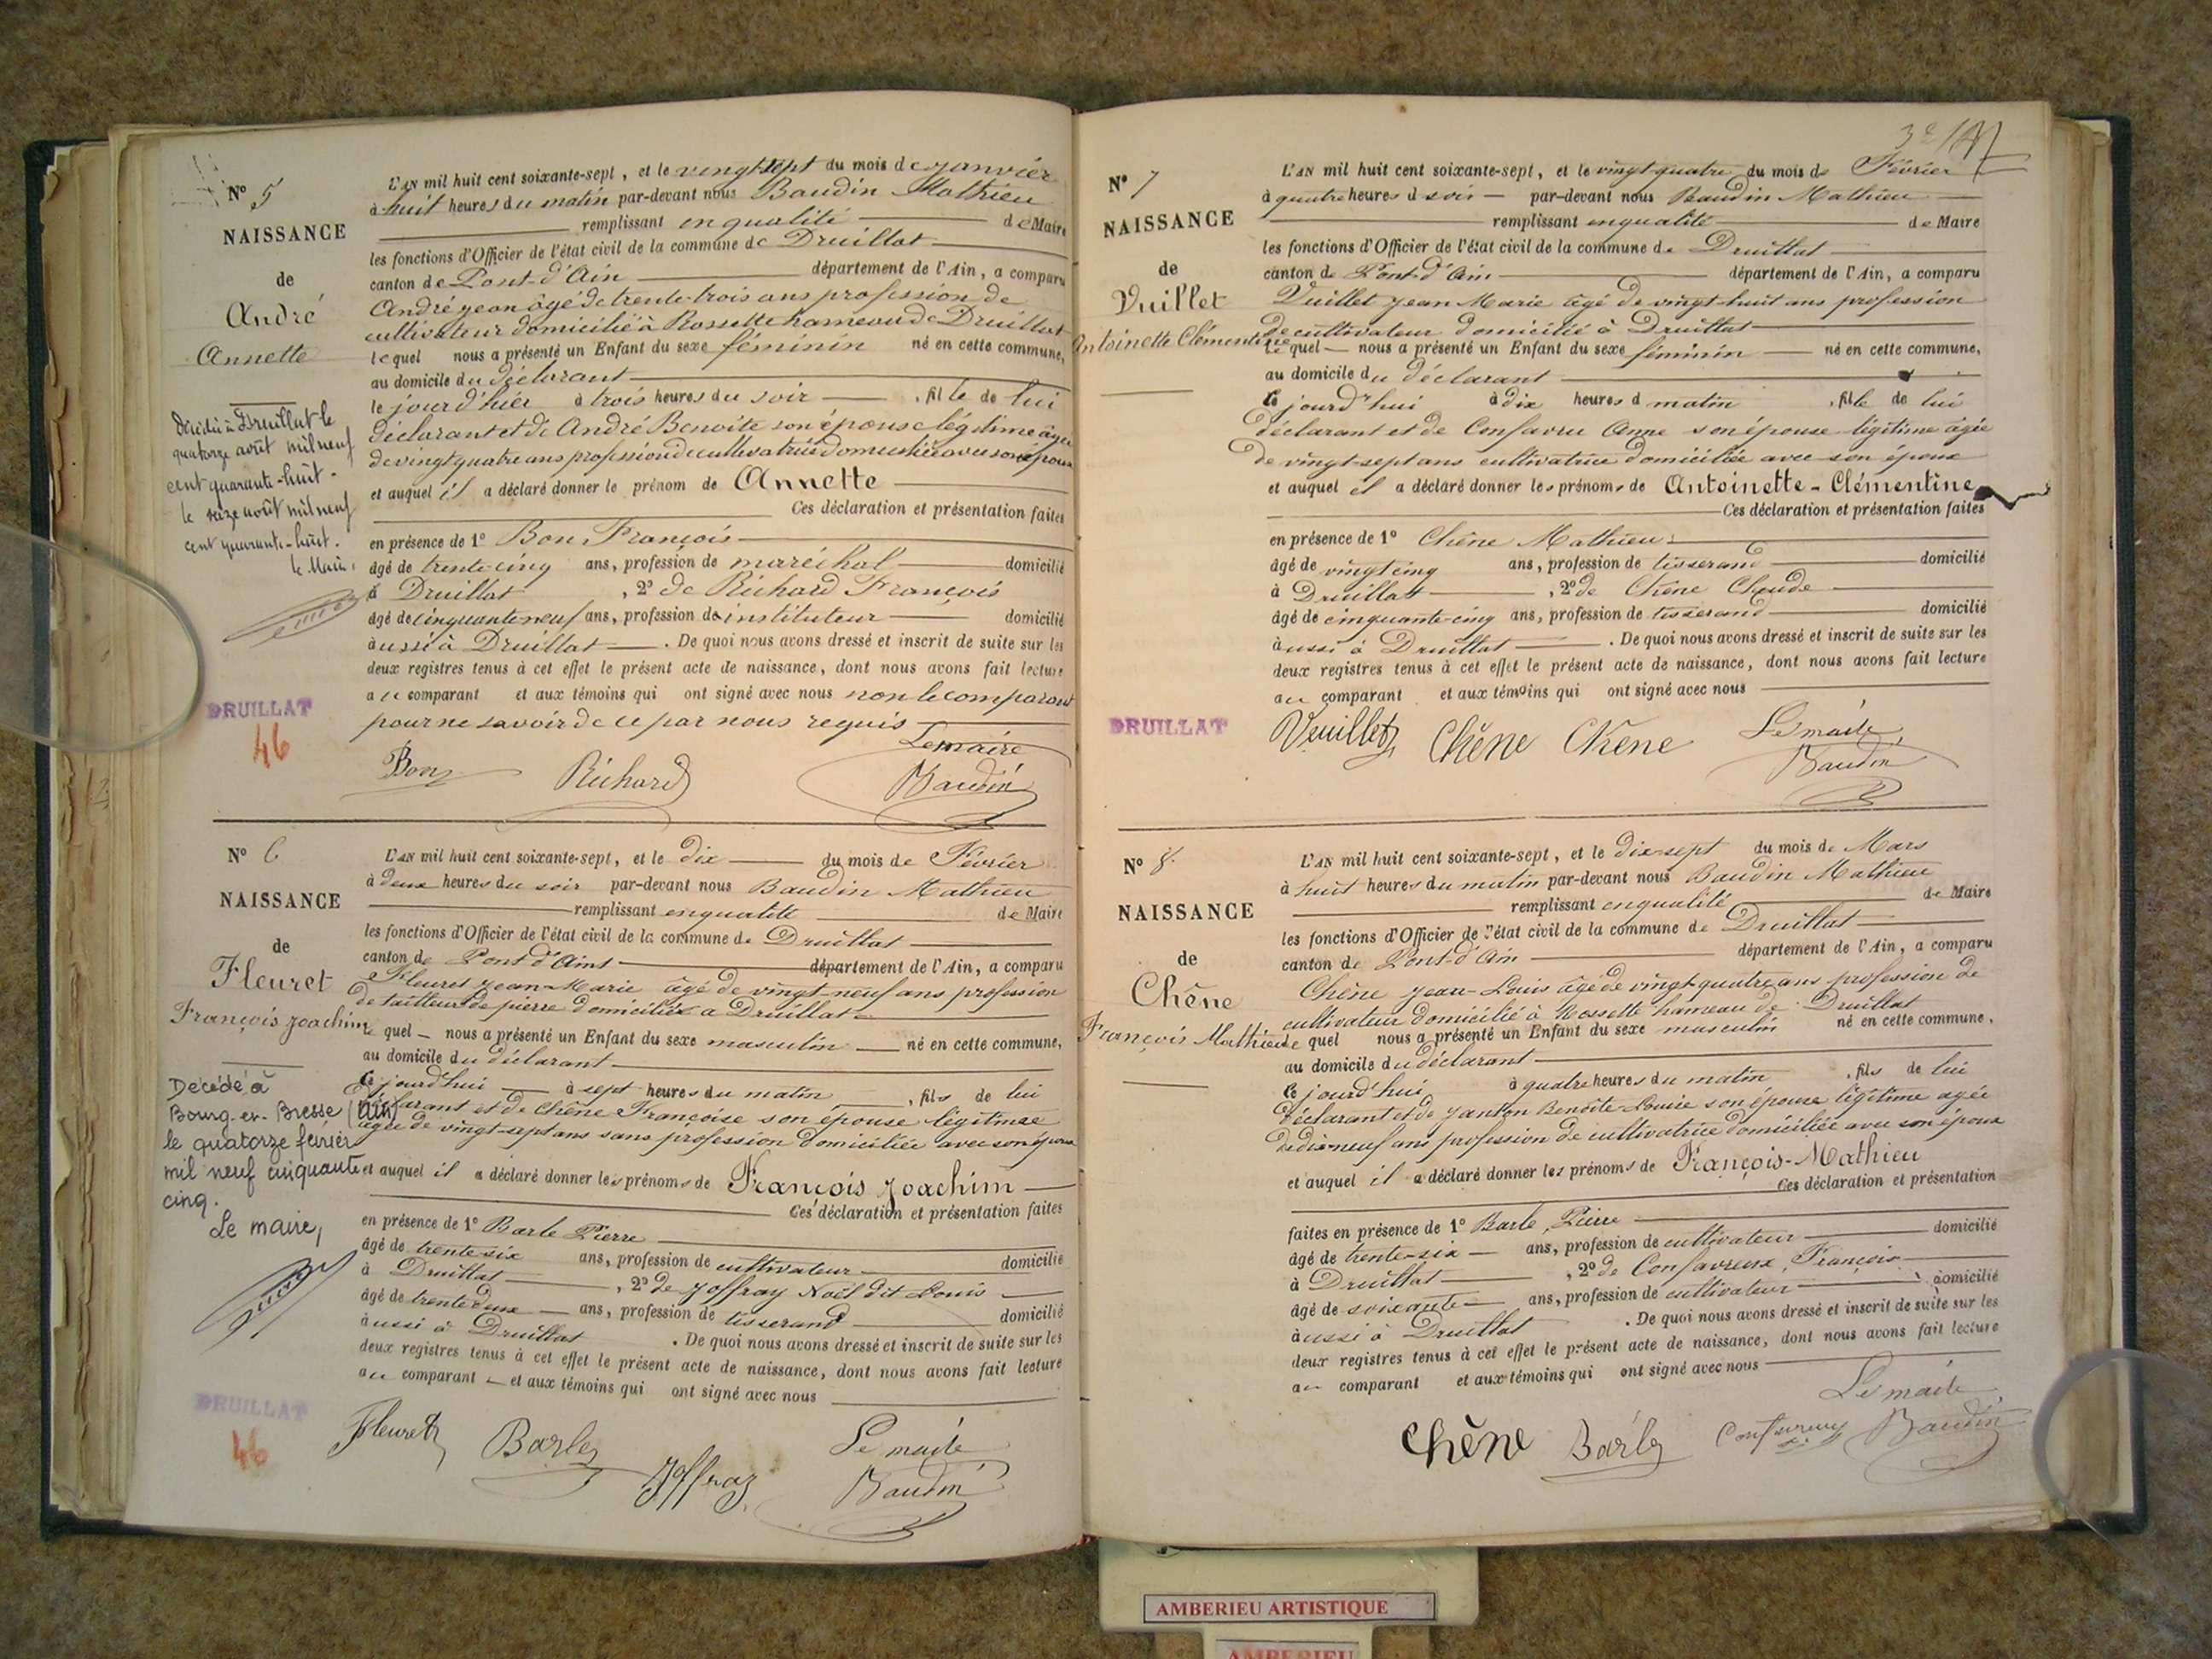 N° 5
NAISSANCE
de
André
Annette
Décédée à Druillat le
quatorze août mil neuf
cent quarante-huit -
le seize août mil neuf
cent quarante-huit.
le Maire,
DRUILLAT
46
L'AN mil huit cent soixante-sept, et le vingt-sept du mois de janvier
à huit heures du matin par-devant nous Baudin Mathieu
remplissant en qualité de Maire
les fonctions d'Officier de l'état civil de la commune de Druillat
canton de Pont-d'Ain département de l'Ain, a comparu
André jean âgé de trente-trois ans profession de
cultivateur domicilié à Rossette hameau de Druillat
lequel nous a présenté un Enfant du sexe féminin né en cette commune,
au domicile du déclarant
le jour d'hier à trois heures du soir , fille de lui
déclarant et de André Benoite son épouse légitime âgée
de vingt quatre ans profession de cultivatrice domiciliée avec son époux
et auquel il a déclaré donner le prénom de Annette
Ces déclaration et présentation faites
en présence de 1° Bon François
âgé de trente-cinq ans, profession de maréchal domicilié
à Druillat , 2° de Richard François
âgé de cinquante-neuf ans, profession de instituteur domicilié
aussi à Druillat . De quoi nous avons dressé et inscrit de suite sur les
deux registres tenus à cet effet le présent acte de naissance, dont nous avons fait lecture
au comparant et aux témoins qui ont signé avec nous non le comparant
pour ne savoir de ce par nous requis
Le maire
Bon Richard Baudin
N° 6
NAISSANCE
de
Fleuret
François joachim
Décédé à
Bourg-en-Bresse (Ain)
le quatorze février
mil neuf cinquante
cinq.
Le maire,
DRUILLAT
46
L'AN mil huit cent soixante-sept, et le dix du mois de Février
à deux heures du soir par-devant nous Baudin Mathieu
remplissant en qualité de Maire
les fonctions d'Officier de l'état civil de la commune de Druillat
canton de Pont d'Ains département de l'Ain, a comparu
Fleuret jean-Marie âgé de vingt-neuf ans profession
de tailleur de pierre domicilié a Druillat
le quel nous a présenté un Enfant du sexe masculin né en cette commune,
au domicile du déclarant
ce jourd'hui à sept heures du matin , fils de lui
déclarant et de Chêne Françoise son épouse légitime
agée de vingt-sept ans sans profession domiciliée avec son époux
et auquel il a déclaré donner les prénoms de François Joachim
Ces déclaration et présentation faites
en présence de 1° Barle Pierre
âgé de trente-six ans, profession de cultivateur domicilié
à Druillat , 2° de Joffray Noël dit Louis
âgé de trente deux ans, profession de tisserand domicilié
aussi à Druillat . De quoi nous avons dressé et inscrit de suite sur les
deux registres tenus à cet effet le présent acte de naissance, dont nous avons fait lecture
au comparant et aux témoins qui ont signé avec nous
Fleuret Barle Joffray Le maire
Baudin
N° 7
NAISSANCE
de
Vuillet
Antoinette Clémentine
DRUILLAT
L'AN mil huit cent soixante-sept, et le vingt-quatre du mois de Février
à quatre heures d soir par-devant nous Baudin Mathieu
remplissant en qualité de Maire
les fonctions d'Officier de l'état civil de la commune de Druillat
canton de Pont-d'Ain département de l'Ain, a comparu
Vuillet jean-Marie âgé de vingt-huit ans profession
de cultivateur domicilié à Druillat
le quel nous a présenté un Enfant du sexe féminin né en cette commune,
au domicile du déclarant
ce jourd'hui à dix heures d matin , fille de lui
déclarant et de Confavru Anne son épouse légitime âgée
de vingt-sept ans cultivatrice domiciliée avec son époux
et auquel il a déclaré donner les prénoms de Antoinette-Clémentine
Ces déclaration et présentation faites
en présence de 1° Chêne Mathieu
âgé de vingt cinq ans, profession de tisserand domicilié
à Druillat , 2° de Chêne Claude
âgé de cinquante-cinq ans, profession de tisserand domicilié
aussi à Druillat . De quoi nous avons dressé et inscrit de suite sur les
deux registres tenus à cet effet le présent acte de naissance, dont nous avons fait lecture
au comparant et aux témoins qui ont signé avec nous
Vuillet Chêne Chêne Le maire
Baudin
N° 8
NAISSANCE
de
Chêne
François Mathieu
L'AN mil huit cent soixante-sept, et le dix-sept du mois de Mars
à huit heures du matin par-devant nous Baudin Mathieu
remplissant en qualité de Maire
les fonctions d'Officier de l'état civil de la commune de Druillat
canton de Pont-d'Ain département de l'Ain, a comparu
Chêne jean-Louis âgé de vingt-quatre ans profession de
cultivateur domicilié à Rossette hameau de Druillat
le quel nous a présenté un Enfant du sexe masculin né en cette commune,
au domicile du déclarant
ce jourd'hui à quatre heures du matin , fils de lui
déclarant et de Janton Benoîte-Louise son épouse légitime agée
de dix-neuf ans profession de cultivatrice domiciliée avec son époux
et auquel il a déclaré donner les prénoms de François-Mathieu
Ces déclaration et présentation
faites en présence de 1° Barle, Pierre
âgé de trente-six ans, profession de cultivateur domicilié
à Druillat , 2° de Confavreux, François
âgé de soixante ans, profession de cultivateur domicilié
aussi à Druillat . De quoi nous avons dressé et inscrit de suite sur les
deux registres tenus à cet effet le présent acte de naissance, dont nous avons fait lecture
au comparant et aux témoins qui ont signé avec nous
Le maire
Chêne Barle Confavreux Baudin
AMBERIEU ARTISTIQUE
AMBERIEU